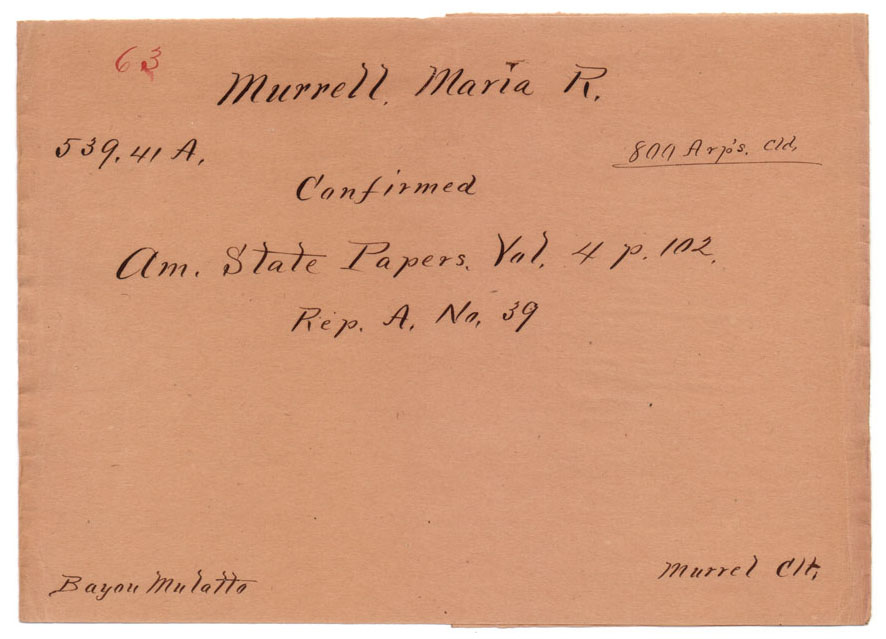 63
Murrell, Maria R.
539.41 A.
800 Arp's. Cld.
Confirmed
Am. State Papers, Vol. 4 p. 102.
Rep. A. No. 39
Bayou Mulatto
Murrel Clt.